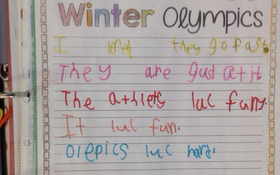 Winter Olympics
I they go fast
They are gud at it
The athlets luc funy
It luc fun.
Olepics luc hard.